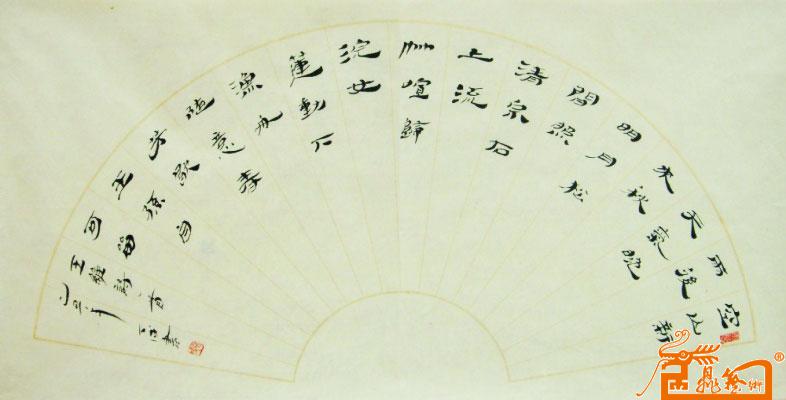 空山新
雨後
天氣晚
来秋
明月松
間照
清泉石
上流
竹喧歸
浣女
蓮動下
漁舟
随意春
芳歇
王孫自
可留
王維詩一首